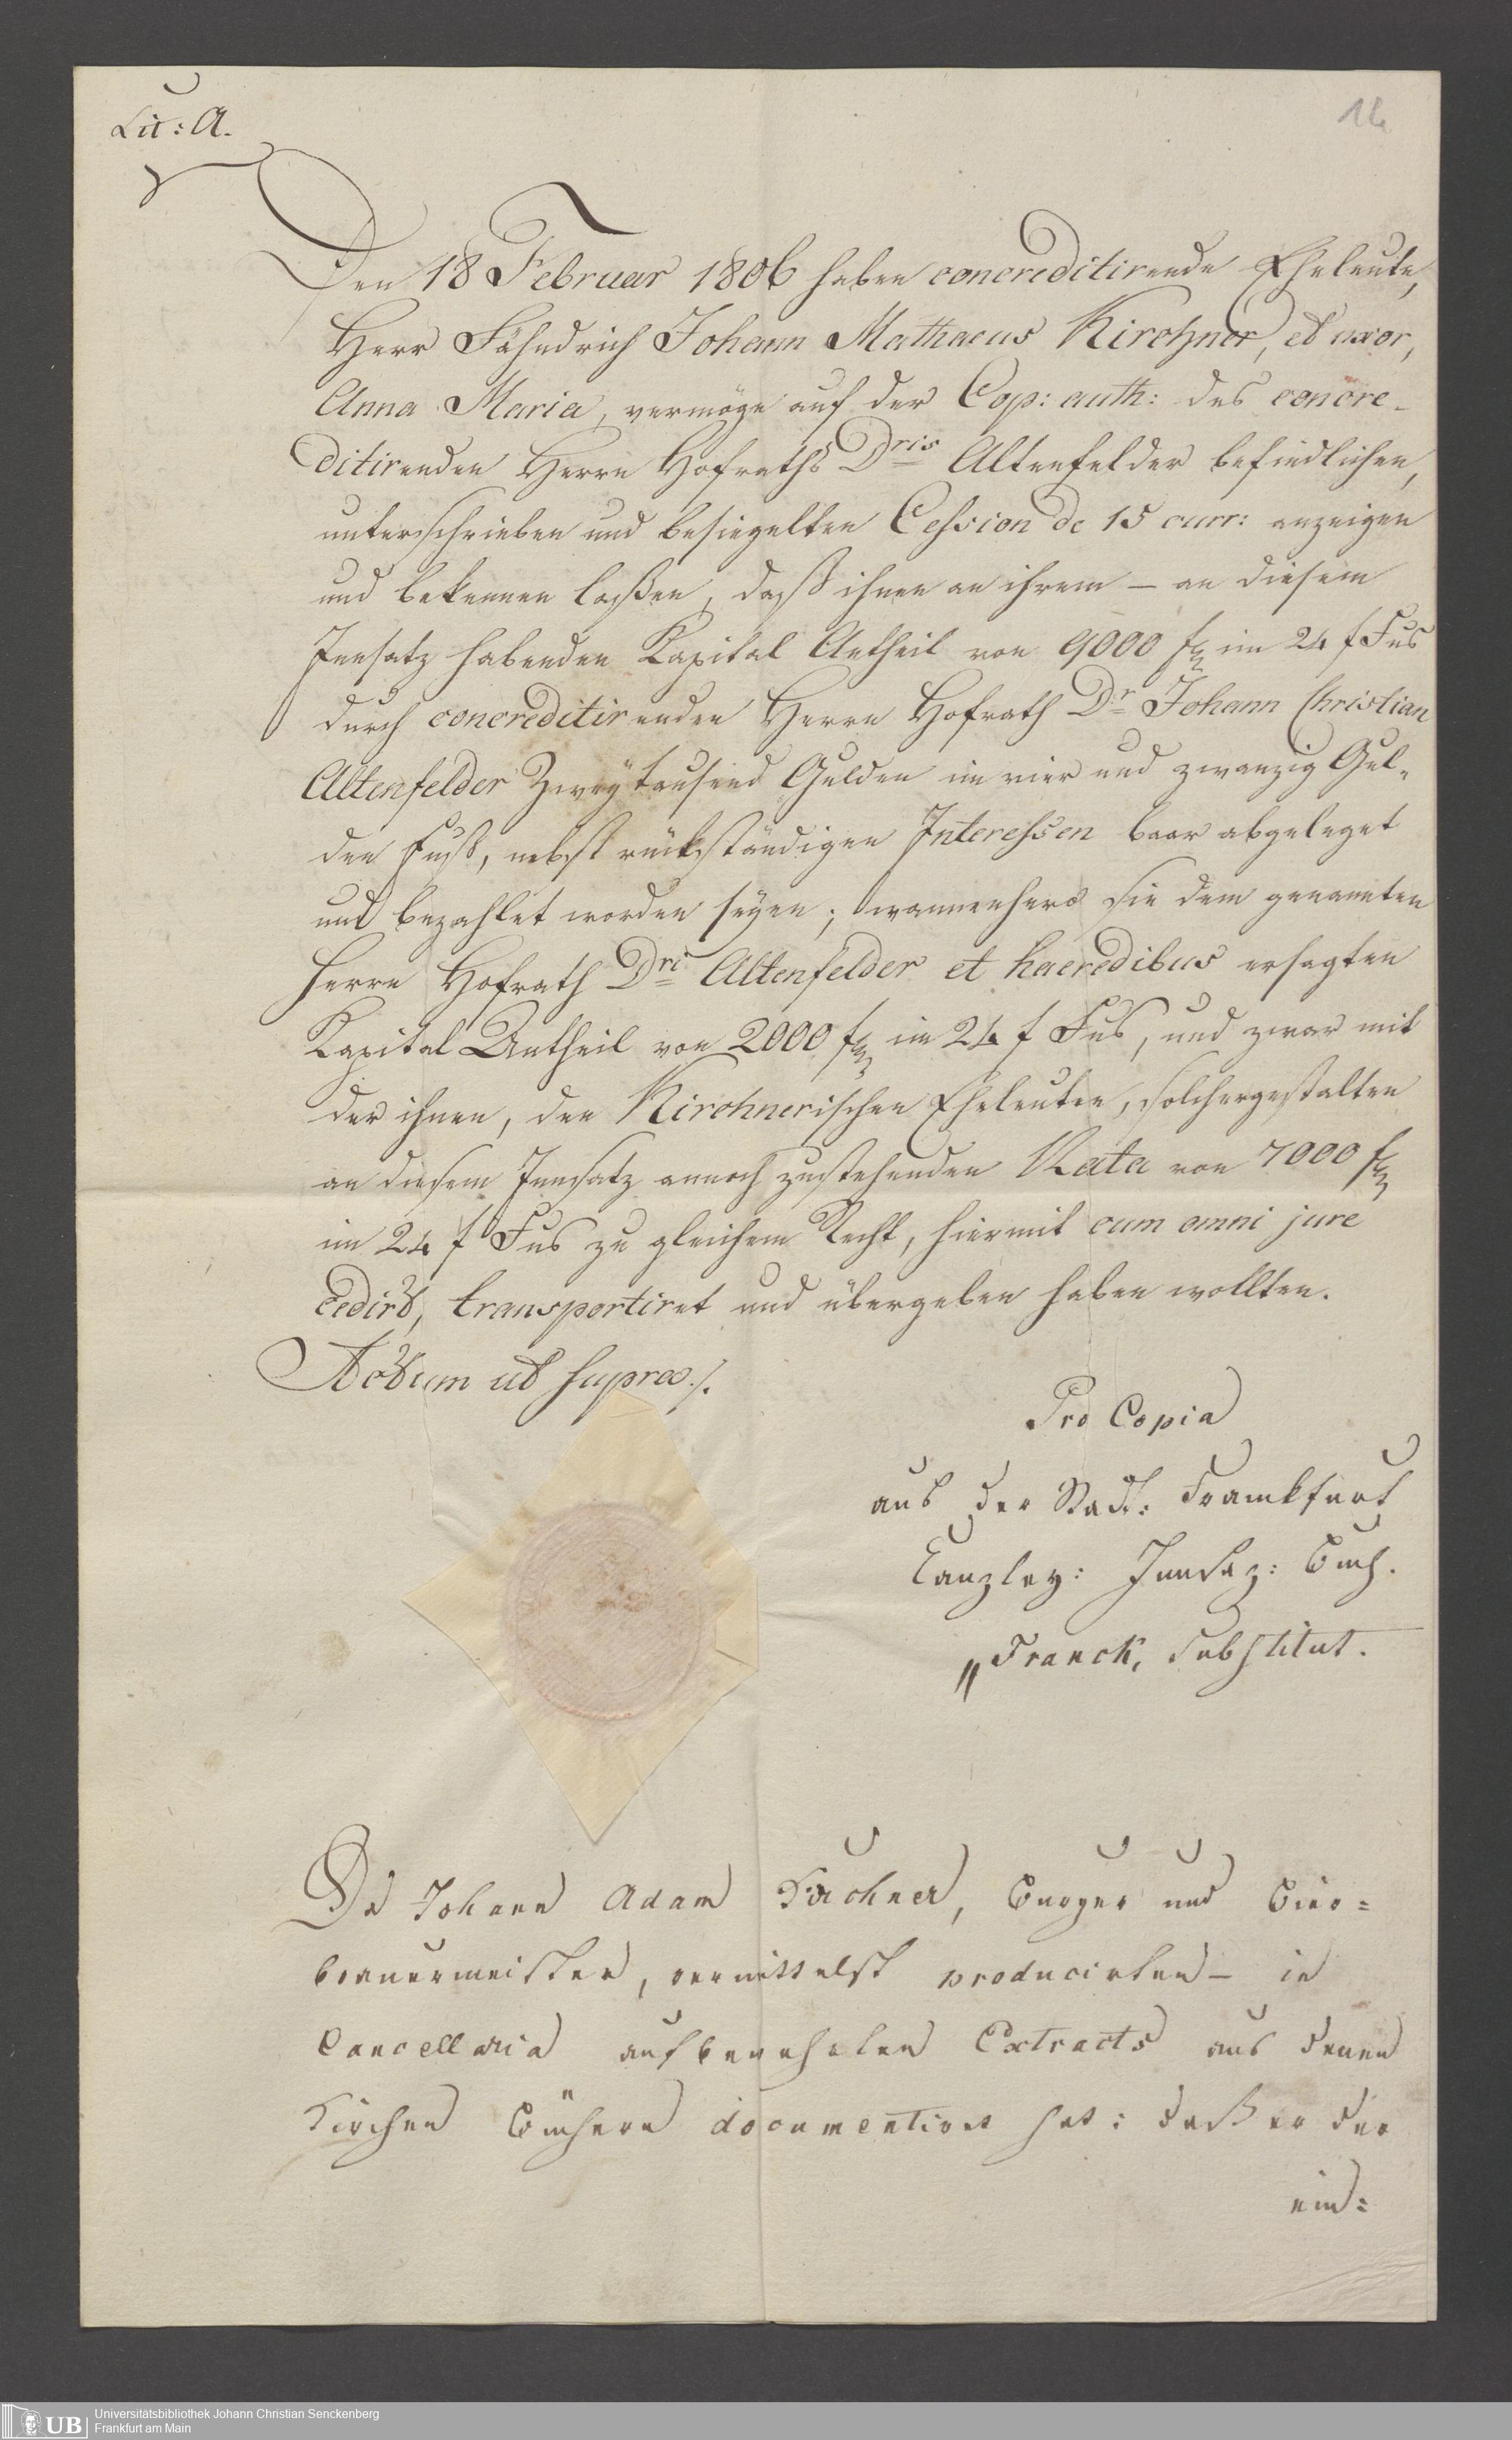 Lit: A.
Den 18 Februar 1806 haben concreditirende Eheleute,
Herr Fähndrich Johann Mathaeus Kirchner, et uxor,
Anna Maria, vermöge auf der Cop: auth: des concre-
ditirenden Herrn Hofraths Dris Altenfelder befindlichen,
unterschrieben und besiegelten Cession de 15 curr: anzeigen
und bekennen laßen, daß ihnen an ihrem – an diesem
Innsatz habenden Kapital Antheil von 9000 f im 24 f Fus
durch concreditirenden Herrn Hofrath Dr Johann Christian
Altenfelder Zweytausend Gulden im vier und zwanzig Gul-
den Fuß, nebst rückständigen Interessen baar abgeleget
und bezahlet worden seyen; wannenhero sie dem genannten
Herrn Hofrath Dri Altenfelder et haeredibus ersagten
Kapital Antheil von 2000 f im 24 f Fus, und zwar mit
der ihnen, den Kirchnerischen Eheleuten, solchergestalten
an diesem Innsatz annoch zustehenden Rata von 7000 f
im 24 f Fus zu gleichem Recht, hiermit cum omni jure
cedirt, transportiret und übergeben haben wollten.
Actum ut supra ./.
Pro Copia
aus der Stadt: Frankfurt
Canzley: Innsaz: Buch.
Franck, Substitut.
Da Johann Adam Kirchner, Burger und Bier=
brauermeister, vermittelst producirten – in
Cancellaria aufbewahrten Extracts aus denen
Kirchen Büchern documentiret hat: daß er der
ein=
UB Universitätsbibliothek Johann Christian Senckenberg
Frankfurt am Main